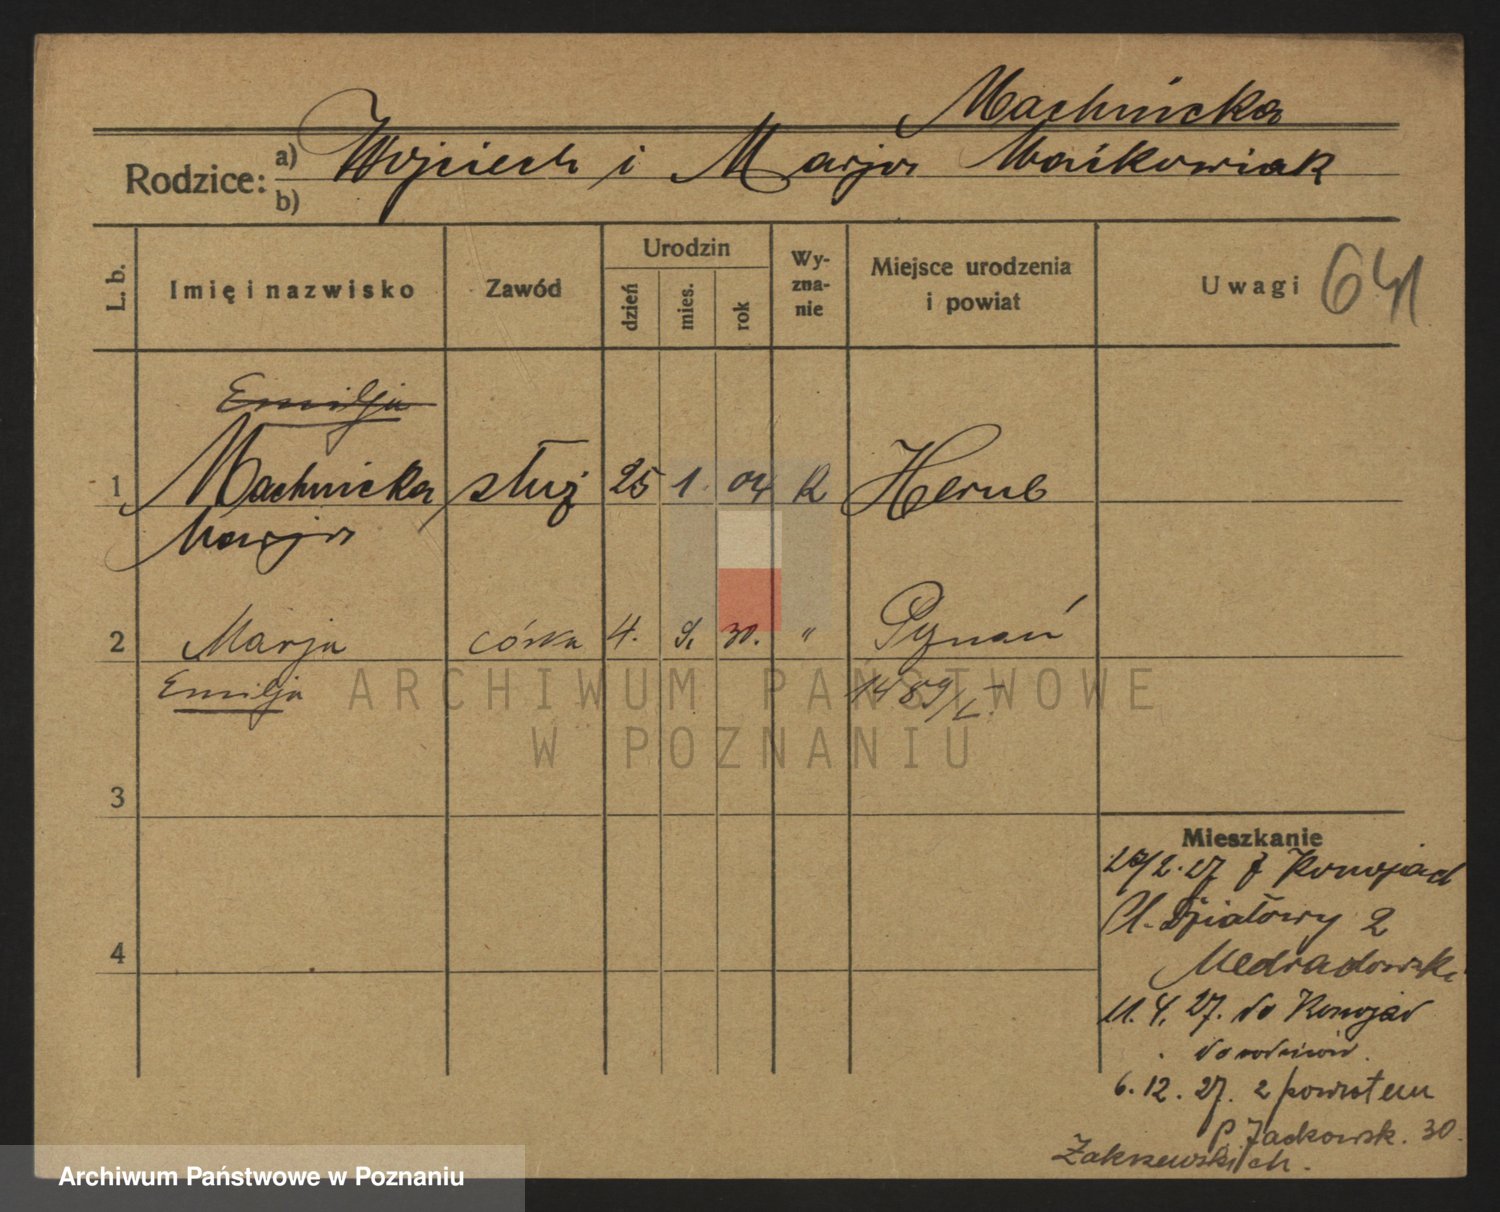 Machnicka
Rodzice: a) Wojciech i Marja Maćkowiak
b)
L. b. Imię i nazwisko Zawód Urodzin dzień mies. rok Wy-zna-nie Miejsce urodzenia i powiat Uwagi 641
Emilja
1 Machnicka służ 25 1. 04 k Herne
Marja
2 Marja córka 4. 9. 30. " Poznań
Emilja 1489/I.
3
Mieszkanie
28/2.27 z Konojad
4 Pl. Działowy 2
11. 4. 27. do Konojad
do rodziców.
6. 12. 27. z powrotem
p. Jackowsk. 30.
Zakrzewskich.
ARCHIWUM PAŃSTWOWE
W POZNANIU
Archiwum Państwowe w Poznaniu